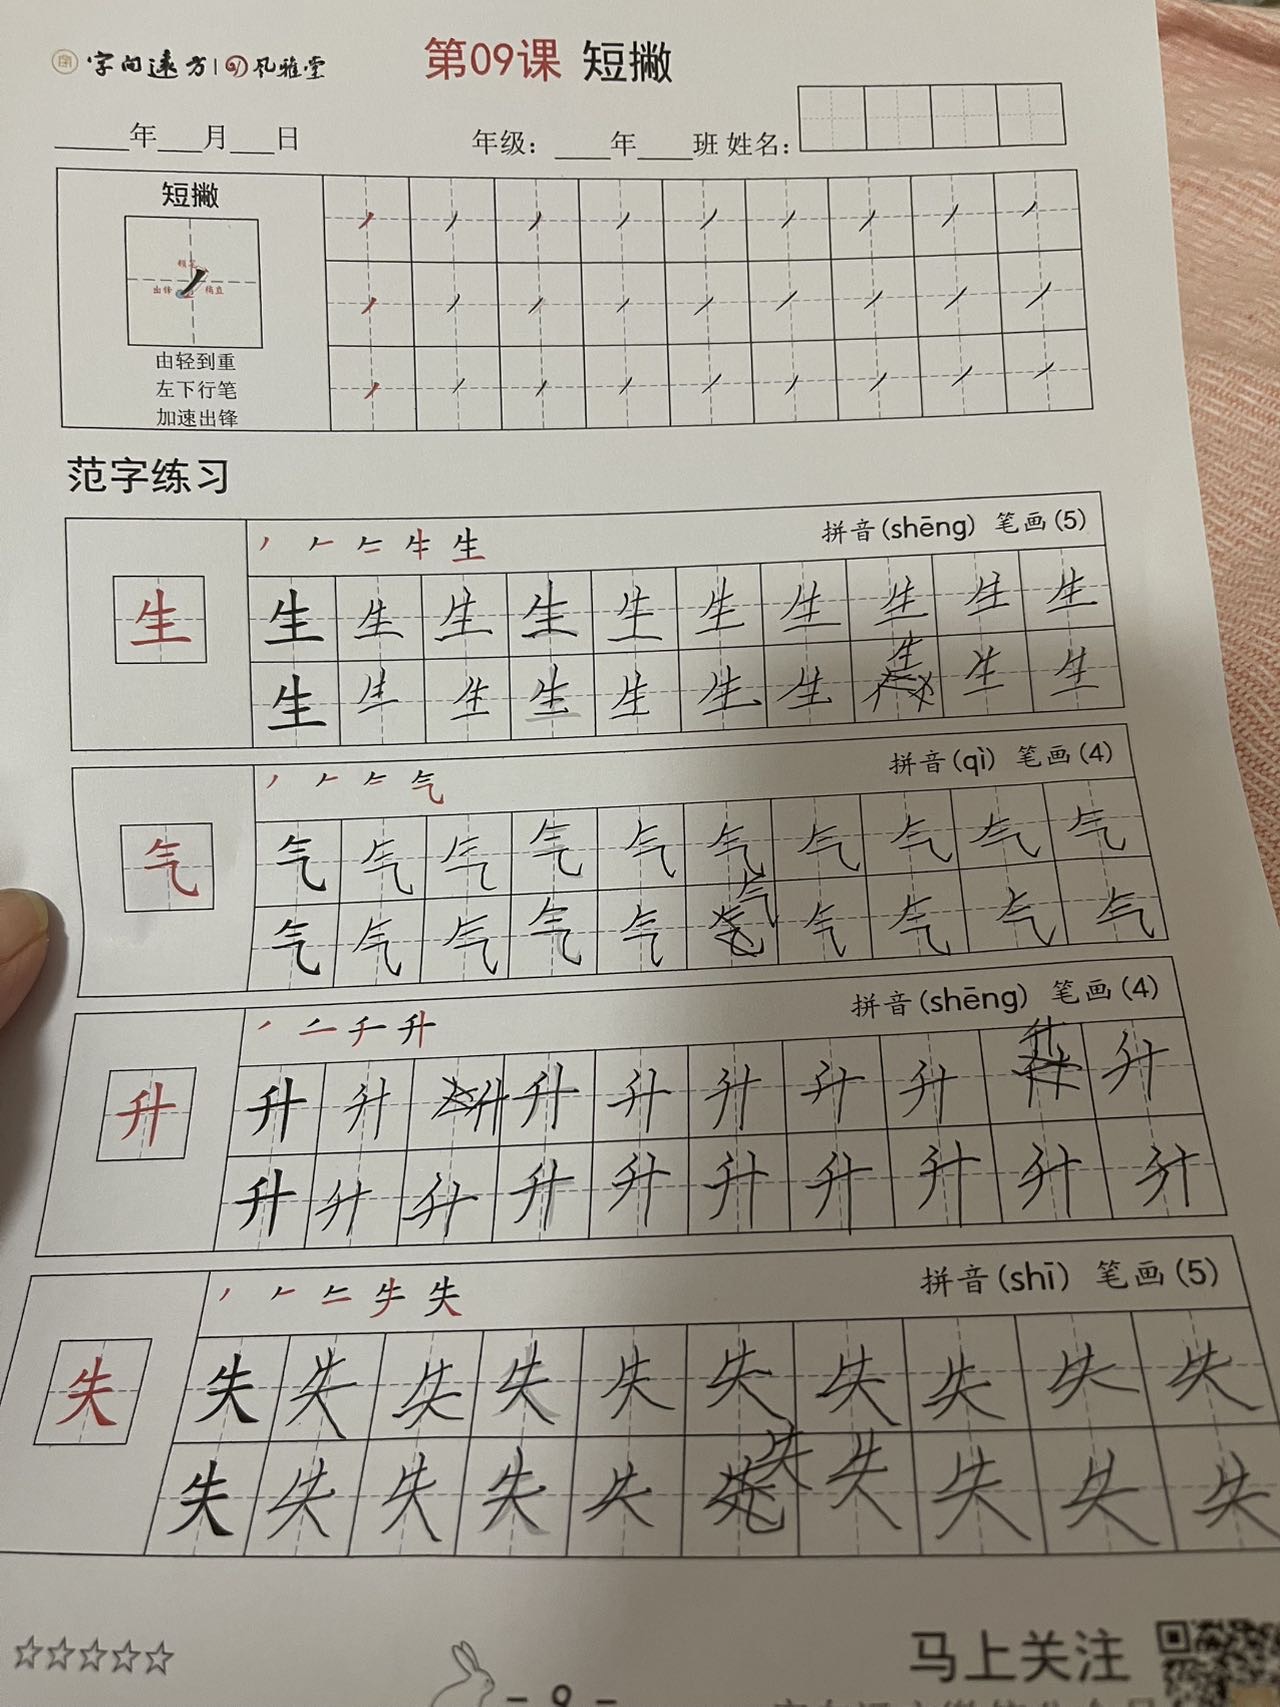 字向远方 风雅堂
第09课 短撇
年 月 日 年级: 年 班 姓名:
短撇
顿笔
出锋 稍直
由轻到重
左下行笔
加速出锋
范字练习
拼音(shēng) 笔画(5)
生
生 生 生 生 生 生 生 生 生 生
生 生 生 生 生 生 生 生 生 生
拼音(qì) 笔画(4)
气
气 气 气 气 气 气 气 气 气 气
气 气 气 气 气 气 气 气 气 气
拼音(shēng) 笔画(4)
升
升 升 升 升 升 升 升 升 升 升
升 升 升 升 升 升 升 升 升 升
拼音(shī) 笔画(5)
失
失 失 失 失 失 失 失 失 失 失
失 失 失 失 失 失 失 失 失 失
马上关注
- 9 -